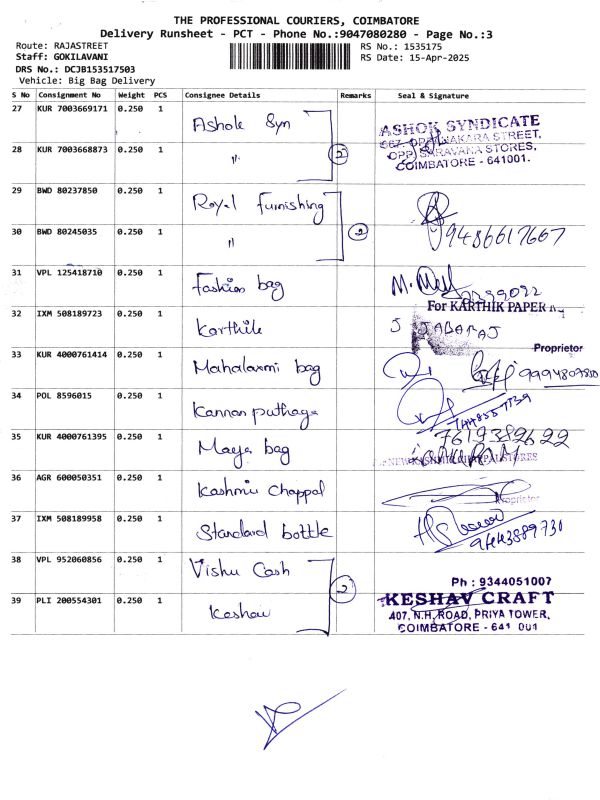 THE PROFESSIONAL COURIERS, COIMBATORE
Delivery Runsheet - PCT - Phone No.:9047080280 - Page No.:3
Route: RAJASTREET
Staff: GOKILAVANI
DRS No.: DCJB153517503
Vehicle: Big Bag Delivery
RS No.: 1535175
RS Date: 15-Apr-2025
S No Consignment No Weight PCS Consignee Details Remarks Seal & Signature
27 KUR 7003669171 0.250 1 Ashok Syn
28 KUR 7003668873 0.250 1 "
ASHOK SYNDICATE
OPP. SARAVANA STORES,
COIMBATORE - 641001.
29 BWD 80237850 0.250 1 Royal furnishing
30 BWD 80245035 0.250 1 " 2 9486617667
31 VPL 125418710 0.250 1 Fashion bag
32 IXM 508189723 0.250 1 Karthik
For KARTHIK PAPER
Proprietor
33 KUR 4000761414 0.250 1 Mahalaxmi bag
34 POL 8596015 0.250 1 Kannan puthaga
35 KUR 4000761395 0.250 1 Maya bag
36 AGR 600050351 0.250 1 Kashmir chappal
Proprietor
37 IXM 508189958 0.250 1 Standard bottle 9443889730
38 VPL 952060856 0.250 1 Vishu Cash 2
39 PLI 200554301 0.250 1 Keshav
Ph : 9344051007
KESHAV CRAFT
407, N.H. ROAD, PRIYA TOWER,
COIMBATORE - 641 001